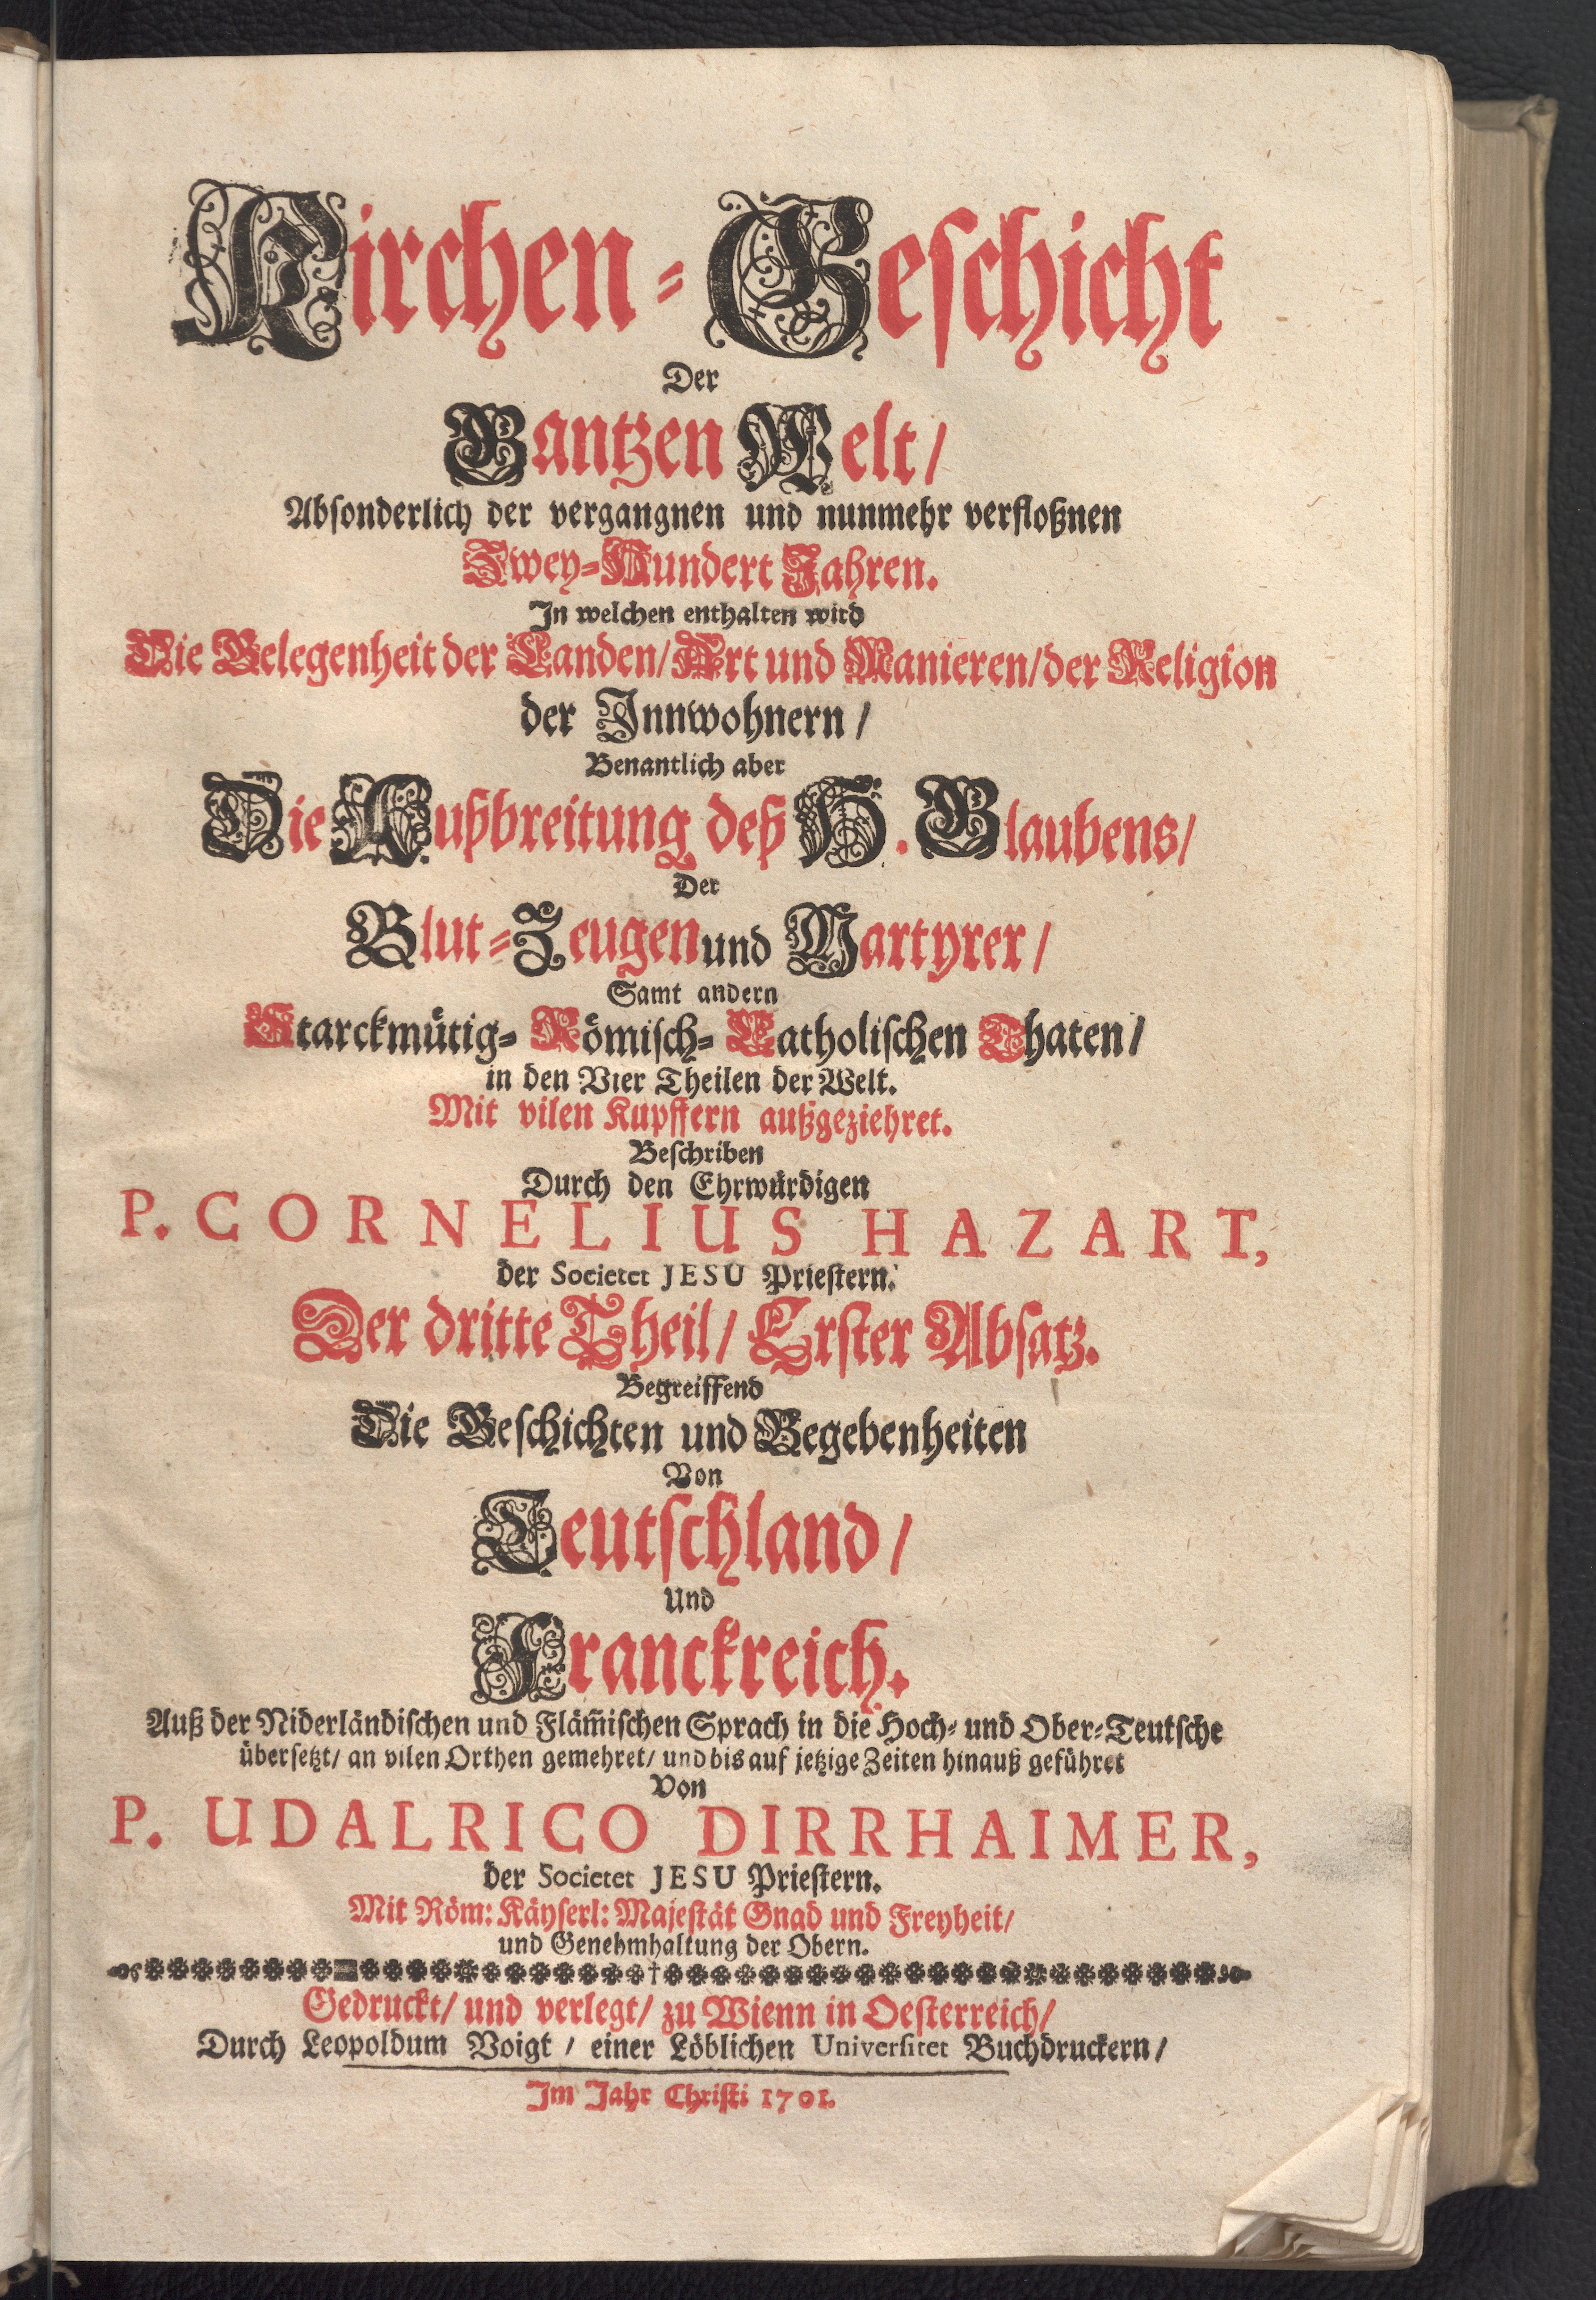 Kirchen-Geschicht
Der
Gantzen Welt/
Absonderlich der vergangnen und nunmehr verfloßnen
Zwey-Hundert Jahren.
In welchen enthalten wird
Die Gelegenheit der Landen/ Art und Manieren/ der Religion
der Innwohnern/
Benantlich aber
Die Außbreitung deß H. Glaubens/
Der
Blut-Zeugen und Martyrer/
Samt andern
Starckmütig- Römisch- Catholischen Thaten/
in den Vier Theilen der Welt.
Mit vilen Kupffern außgeziehret.
Beschriben
Durch den Ehrwürdigen
P. CORNELIUS HAZART,
der Societet JESU Priestern.
Der dritte Theil/ Erster Absatz.
Begreiffend
Die Geschichten und Begebenheiten
Von
Teutschland/
Und
Franckreich.
Auß der Niderländischen und Fläm̃ischen Sprach in die Hoch- und Ober-Teutsche
übersetzt/ an vilen Orthen gemehret/ und bis auf jetzige Zeiten hinauß geführet
Von
P. UDALRICO DIRRHAIMER,
der Societet JESU Priestern.
Mit Röm: Käyserl: Majestät Gnad und Freyheit/
und Genehmhaltung der Obern.
Gedruckt/ und verlegt/ zu Wienn in Oesterreich/
Durch Leopoldum Voigt/ einer Löblichen Universitet Buchdruckern/
Im Jahr Christi 1701.